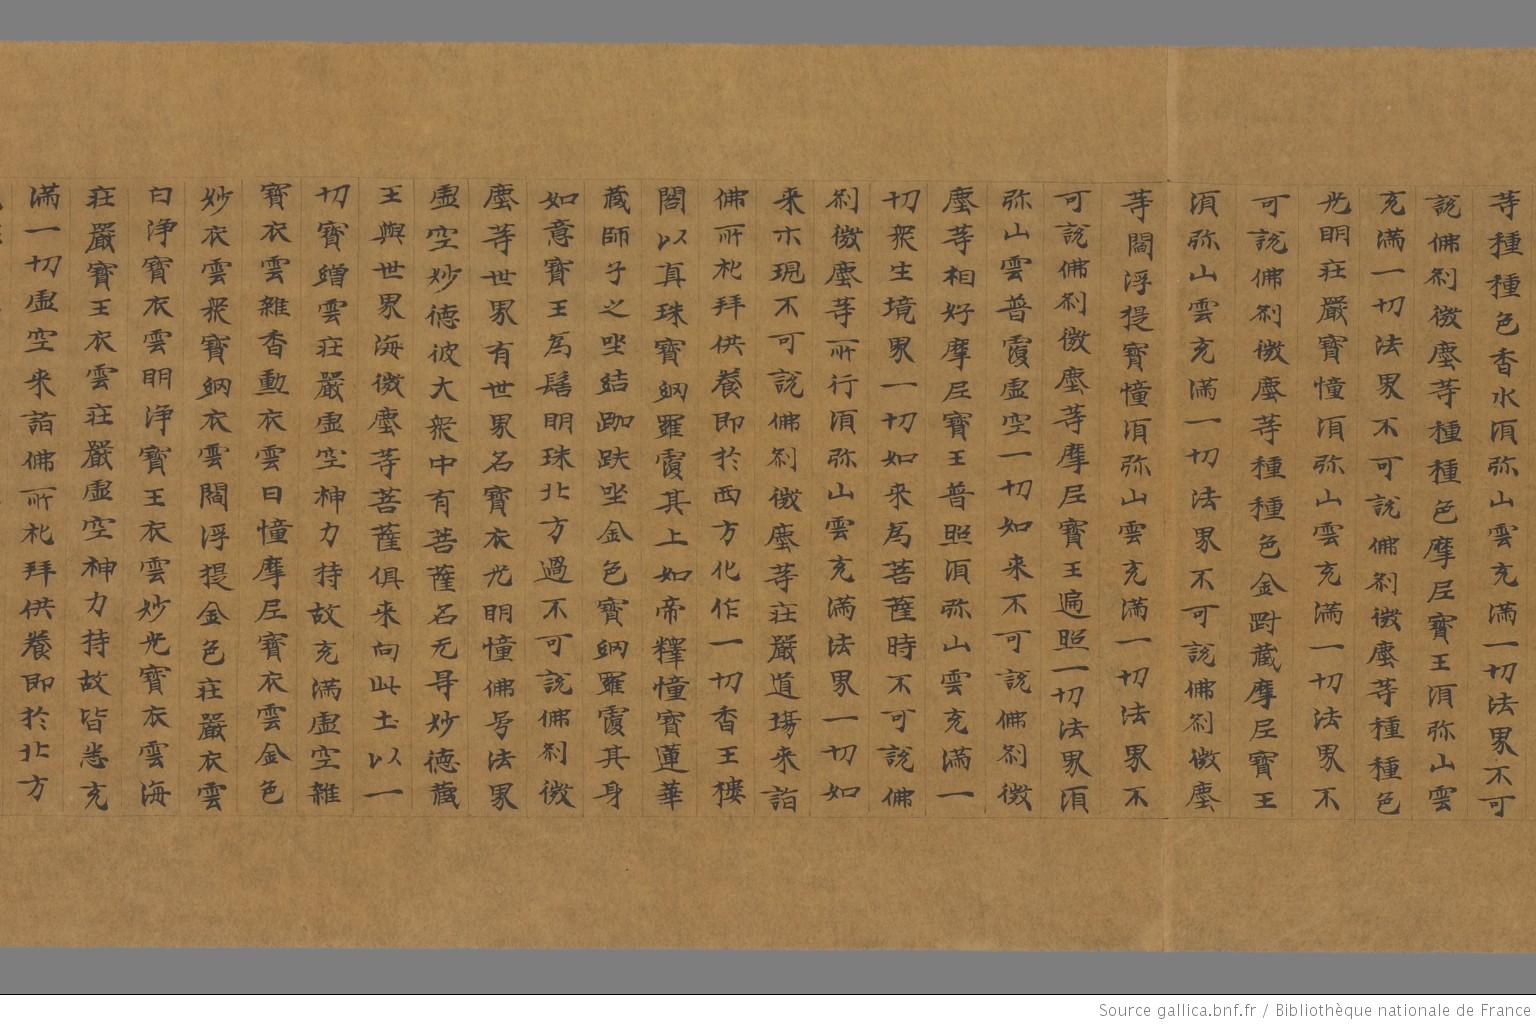 等種種色香水湏弥山雲充滿一切法界不可
說佛刹微塵等種種色摩尼寶王湏弥山雲
充滿一切法界不可說佛刹微塵等種種色
光明莊嚴寶憧湏弥山雲充滿一切法界不
可說佛刹微塵等種種色金對藏摩尼寶王
湏弥山雲充滿一切法界不可說佛刹微塵
等閻浮提寶憧湏弥山雲充滿一切法界不
可說佛刹微塵等摩尼寶王遍照一切法界湏
弥山雲普覆虛空一切如来不可說佛刹微
塵等相好摩尼寶王普照湏弥山雲充滿一
切衆生境界一切如来爲菩薩時不可說佛
刹微塵等所行湏弥山雲充滿法界一切如
来示現不可說佛刹微塵等莊嚴道場来詣
佛所礼拜供養即於西方化作一切香王樓
閣以真珠寶網羅覆其上如帝釋憧寶蓮華
藏師子之坐結跏趺坐金色寶網羅覆其身
如意寶王爲髻明珠北方過不可說佛刹微
塵等世界有世界名寶衣光明憧佛号法界
虛空妙德彼大衆中有菩薩名无㝵妙德藏
王與世界海微塵等菩薩俱来向此土以一
切寶繒雲莊嚴虛空神力持故充滿虛空雜
寶衣雲雜香勳衣雲日憧摩尼寶衣雲金色
妙衣雲衆寶網衣雲閻浮提金色莊嚴衣雲
白淨寶衣雲明淨寶王衣雲妙光寶衣雲海
莊嚴寶王衣雲莊嚴虛空神力持故皆悉充
滿一切虛空来詣佛所礼拜供養即於北方
Source gallica.bnf.fr / Bibliothèque nationale de France